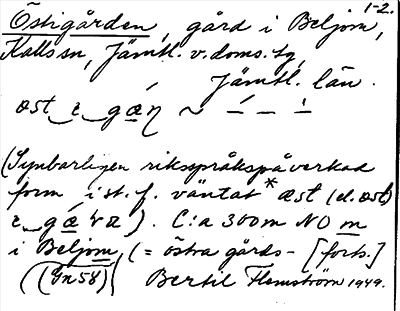 1-2.
Östigården, gård i Beljom,
Kallssn, Jämtl. v. doms. tg,
Jämtl. län.
æst‿e‿gá̱η ~ –́ – –̇
(Synbarligen riksspråkspåverkad
form i st. f. väntat *æst (el. øst)
e‿gá̱ɽa). C:a 300 m NO m
i Beljom (= östra gårds- [forts.]
((Gn 58) Bertil Flemström 1949.